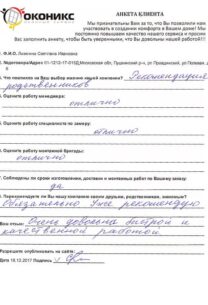 ОКОНИКС
АНКЕТА КЛИЕНТА
Мы признательны Вам за то, что Вы позволили нам
участвовать в создании комфорта в Вашем доме! Мы
постоянно повышаем качество нашего сервиса и просим
Вас заполнить анкету, чтобы быть уверенными, что Вы довольны нашей работой!!!
1. Ф.И.О. Светлана Ивановна
2. №договора/Адрес Московская обл, Пушкинский р-н,
3. Что повлияло на Ваш выбор именно нашей компании? Рекомендация
родственников
4. Оцените работу менеджера:
отлично
5. Оцените работу специалиста по замеру:
отлично
6. Оцените работу монтажной бригады:
отлично
7. Соблюдены ли сроки изготовления, доставки и монтажных работ по Вашему заказу:
да
8. Порекомендуете ли Вы нашу компанию своим друзьям, родственникам, знакомым?
Обязательно Уже рекомендую
Ваш отзыв: Очень довольна быстрой и
качественной работой.
Разрешаете опубликовать на сайте
Дата 18.12.2017 Подпись